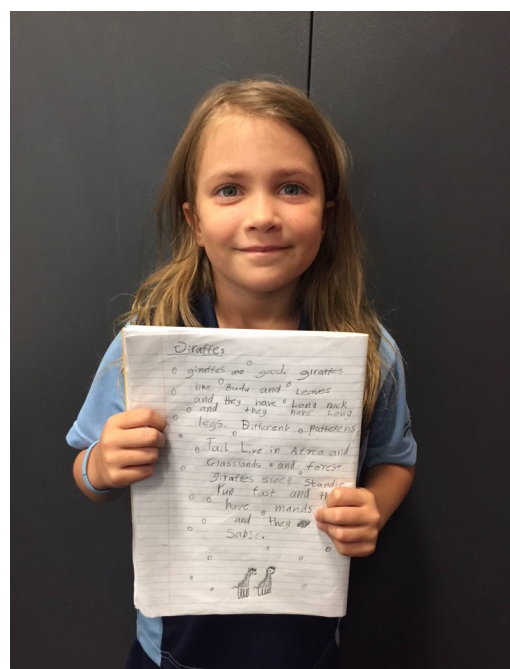 Giraffes
giraffes are good. giraffes
like Budu and Leaves
and they have Long nick
and they have Long
legs. Different patterens
Tail Live in Africa and
Grasslands and forest
giraffes sleep Standi
run fast and th
have mands and
and they
Sabsc.